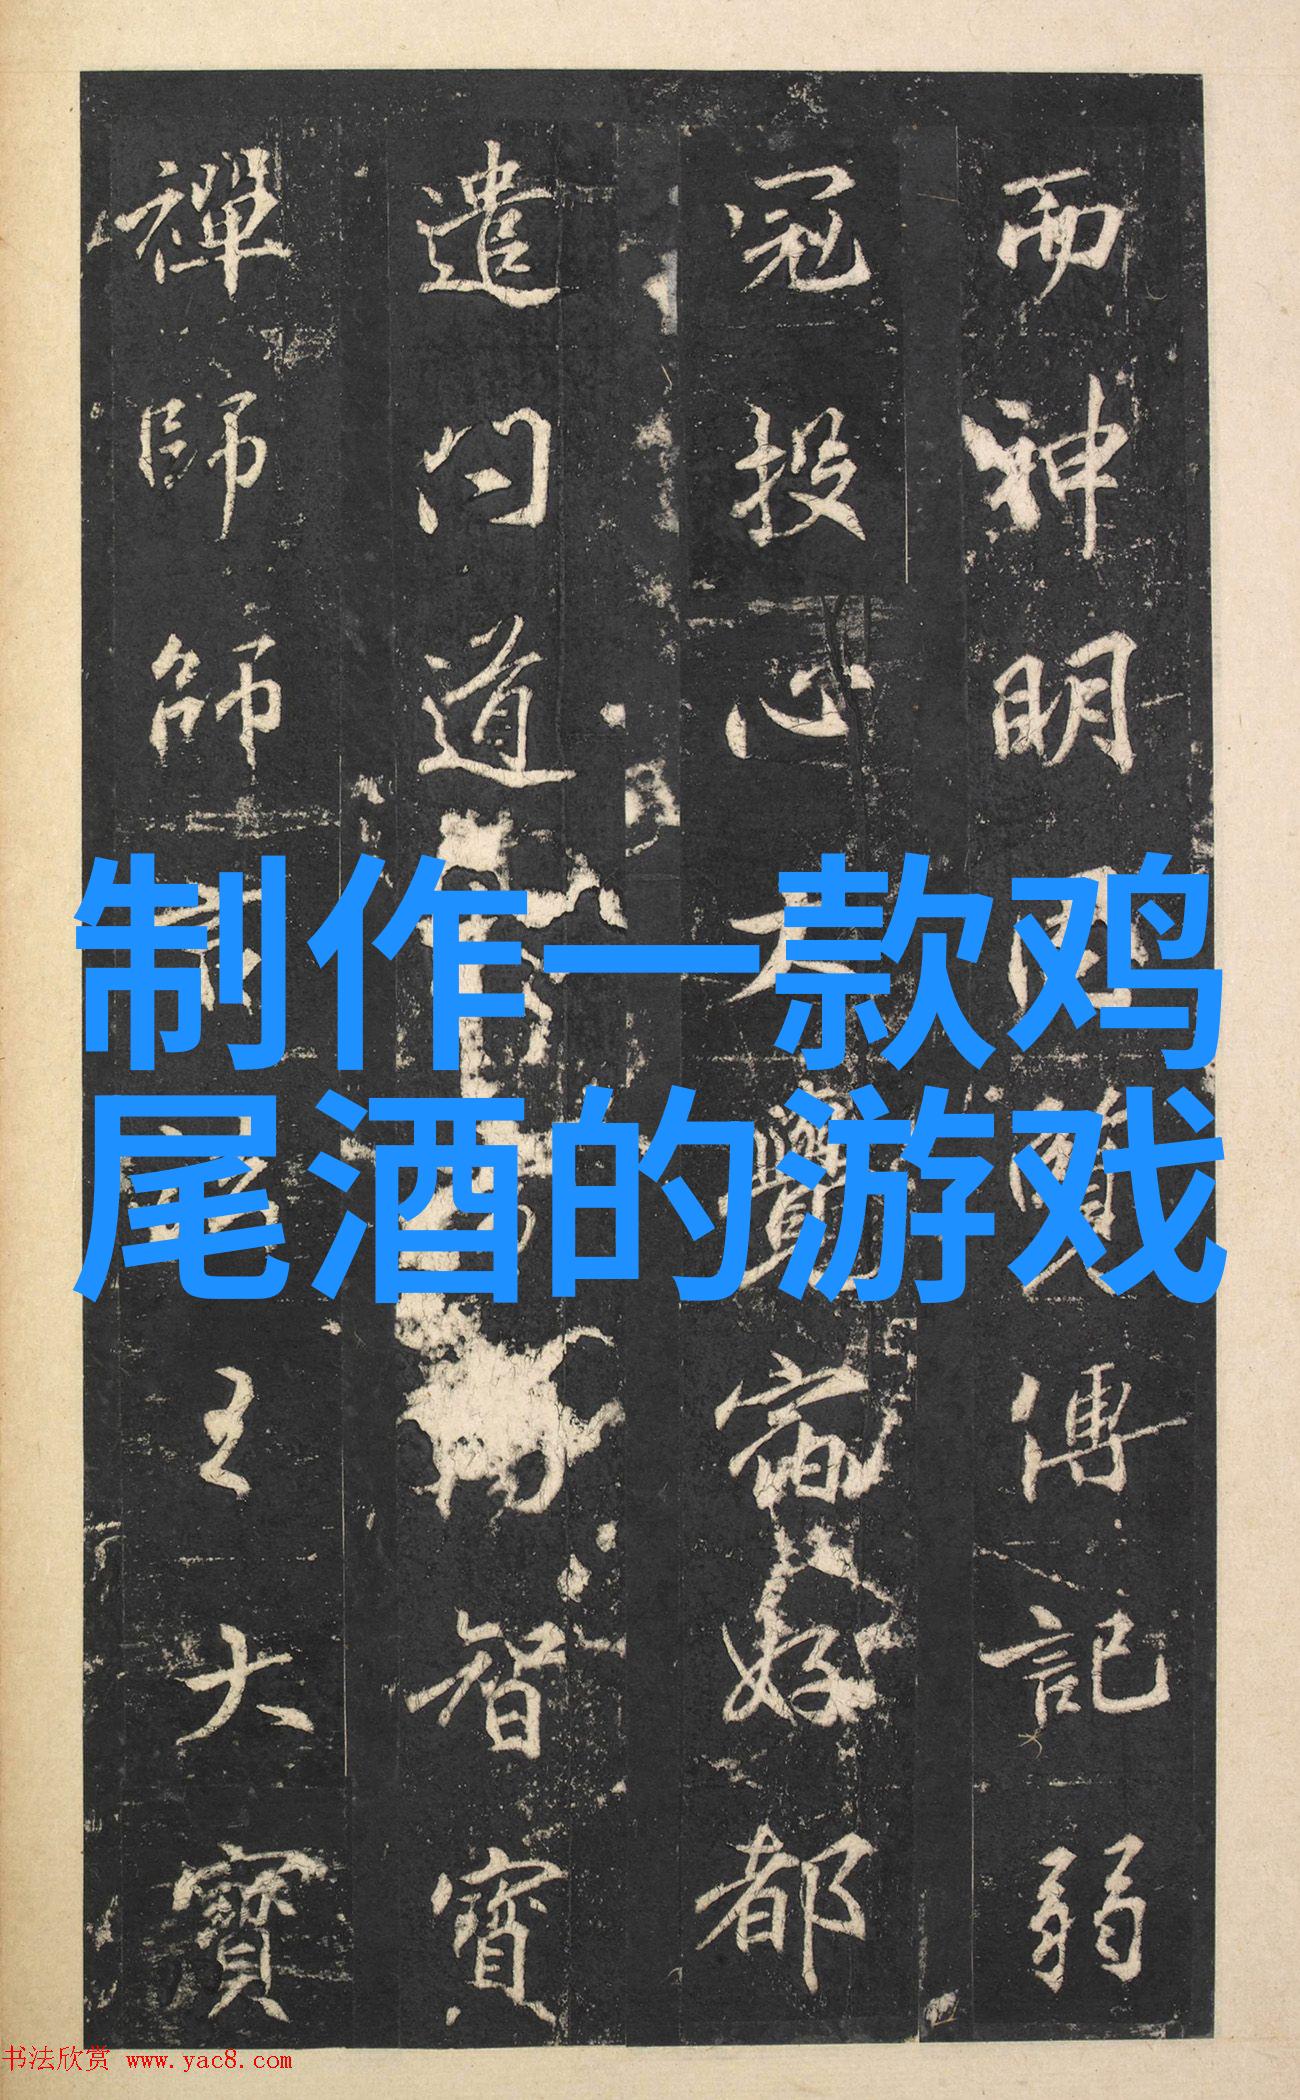 而神明因贊傳記弱
冠投心大覺當好都
遣曰道智寳
禪師師主大寶
制作一款鸡
尾酒的游戏
书法欣赏 www.yac8.com